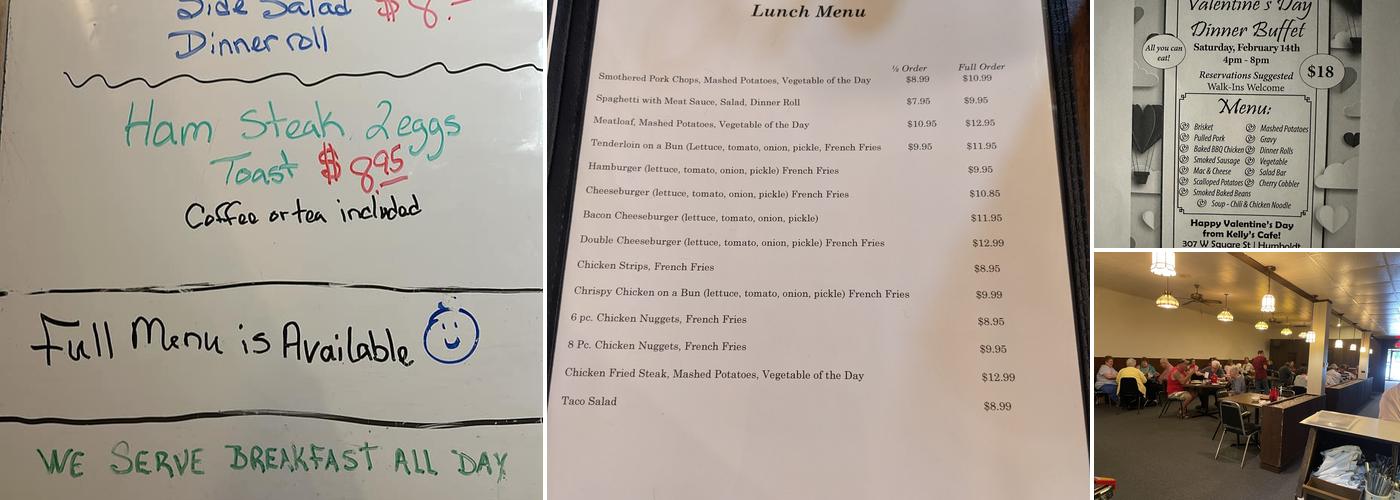 Side Salad $8.
Dinner roll
Ham Steak 2eggs
Toast $8.95
Coffee or tea included
Full Menu is Available
WE SERVE BREAKFAST ALL DAY
Lunch Menu
½ Order Full Order
Smothered Pork Chops, Mashed Potatoes, Vegetable of the Day $8.99 $10.99
Spaghetti with Meat Sauce, Salad, Dinner Roll $7.95 $9.95
Meatloaf, Mashed Potatoes, Vegetable of the Day $10.95 $12.95
Tenderloin on a Bun (Lettuce, tomato, onion, pickle, French Fries $9.95 $11.95
Hamburger (lettuce, tomato, onion, pickle) French Fries $9.95
Cheeseburger (lettuce, tomato, onion, pickle) French Fries $10.85
Bacon Cheeseburger (lettuce, tomato, onion, pickle) $11.95
Double Cheeseburger (lettuce, tomato, onion, pickle) French Fries $12.99
Chicken Strips, French Fries $8.95
Chrispy Chicken on a Bun (lettuce, tomato, onion, pickle) French Fries $9.99
6 pc. Chicken Nuggets, French Fries $8.95
8 Pc. Chicken Nuggets, French Fries $9.95
Chicken Fried Steak, Mashed Potatoes, Vegetable of the Day $12.99
Taco Salad $8.99
Valentine's Day
Dinner Buffet
All you can
eat!
Saturday, February 14th
4pm - 8pm
$18
Reservations Suggested
Walk-Ins Welcome
Menu:
Brisket Mashed Potatoes
Pulled Pork Gravy
Baked BBQ Chicken Dinner Rolls
Smoked Sausage Vegetable
Mac & Cheese Salad Bar
Scalloped Potatoes Cherry Cobbler
Smoked Baked Beans
Soup - Chili & Chicken Noodle
Happy Valentine's Day
from Kelly's Cafe!
307 W Square St | Humboldt